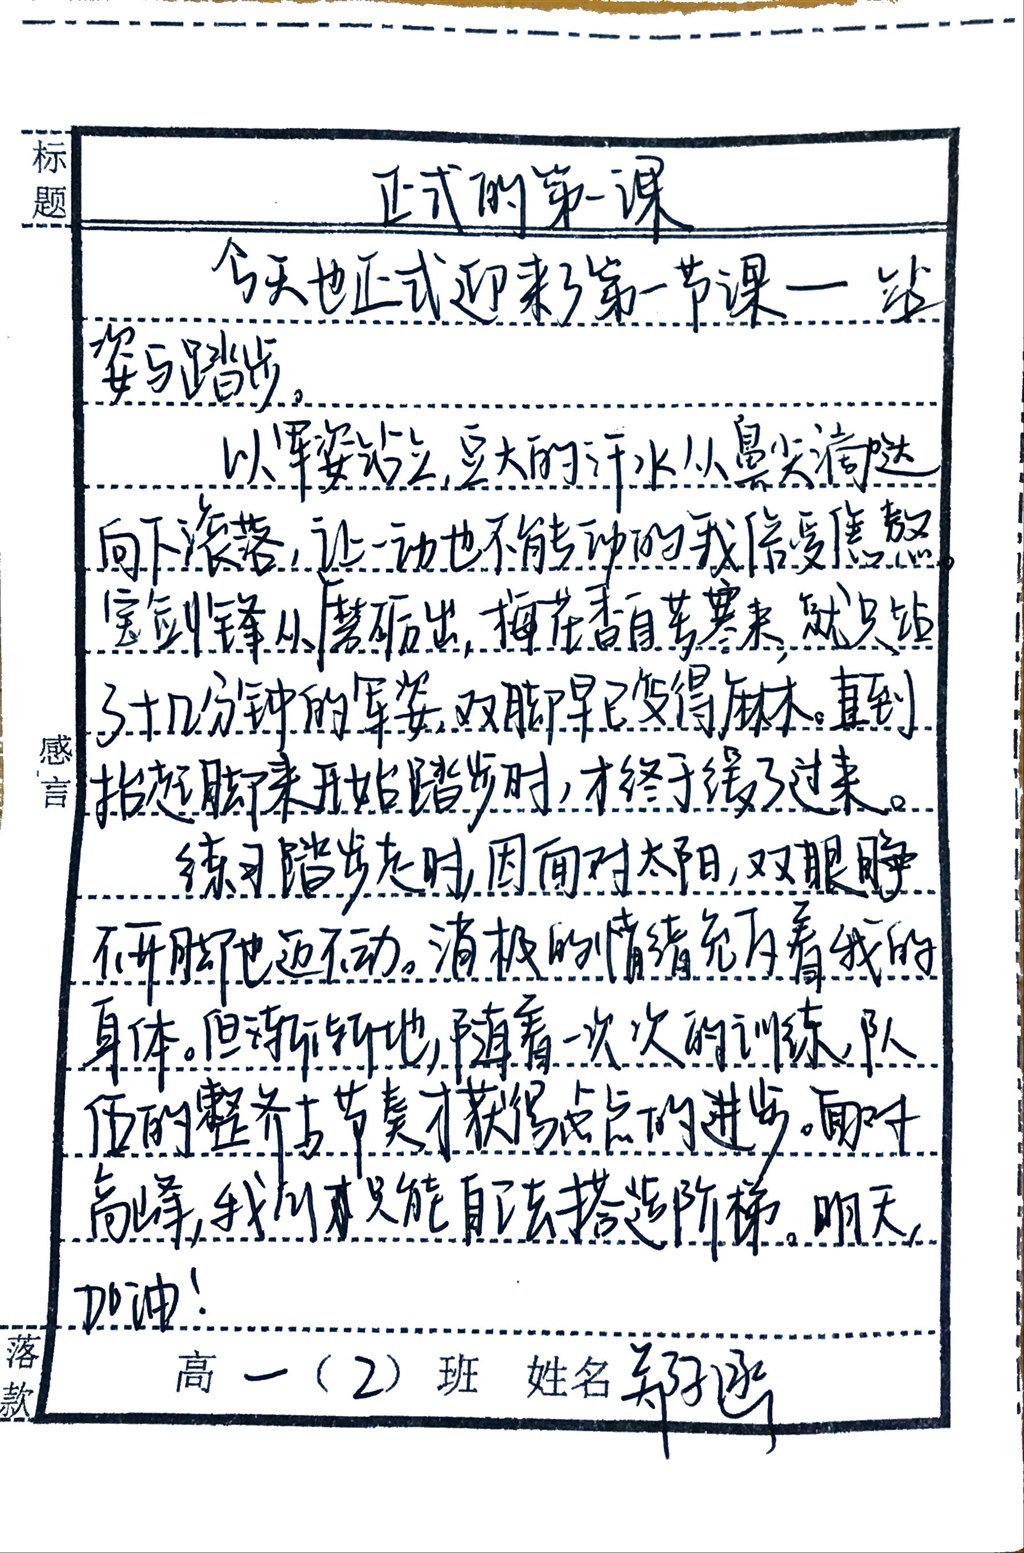 标题
正式的第一课
今天也正式迎来了第一节课一站
姿与踏步。
以军姿站立,豆大的汗水从鼻尖滴哒
向下滚落,让一动也不能动的我倍受焦熬。
宝剑锋从磨砺出,梅花香自苦寒来,就只站
了十几分钟的军姿,双脚早已变得麻木。直到
抬起脚来开始踏步时,才终于缓了过来。
感言
练习踏步走时,因面对太阳,双眼睁
不开脚也迈不动。消极的情绪充斥着我的
身体。但渐渐地,随着一次次的训练,队
伍的整齐与节奏才获得点点的进步。面对
高峰,我们才只能自己去搭造阶梯。明天,
加油!
落款
高一(2)班 姓名郑子涵